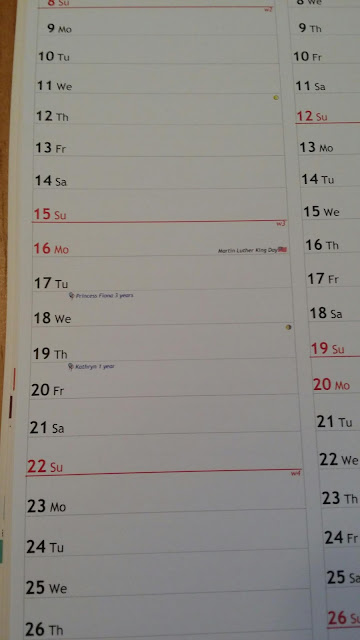 8 Su
w2
9 Mo
10 Tu
11 We
12 Th
13 Fr
14 Sa
15 Su
w3
16 Mo Martin Luther King Day
17 Tu
Princess Fiona 3 years
18 We
19 Th
Kathryn 1 year
20 Fr
21 Sa
22 Su
w4
23 Mo
24 Tu
25 We
26 Th
8 We
9 Th
10 Fr
11 Sa
12 Su
13 Mo
14 Tu
15 We
16 Th
17 Fr
18 Sa
19 Su
20 Mo
21 Tu
22 We
23 Th
24 Fr
25 Sa
26 Su